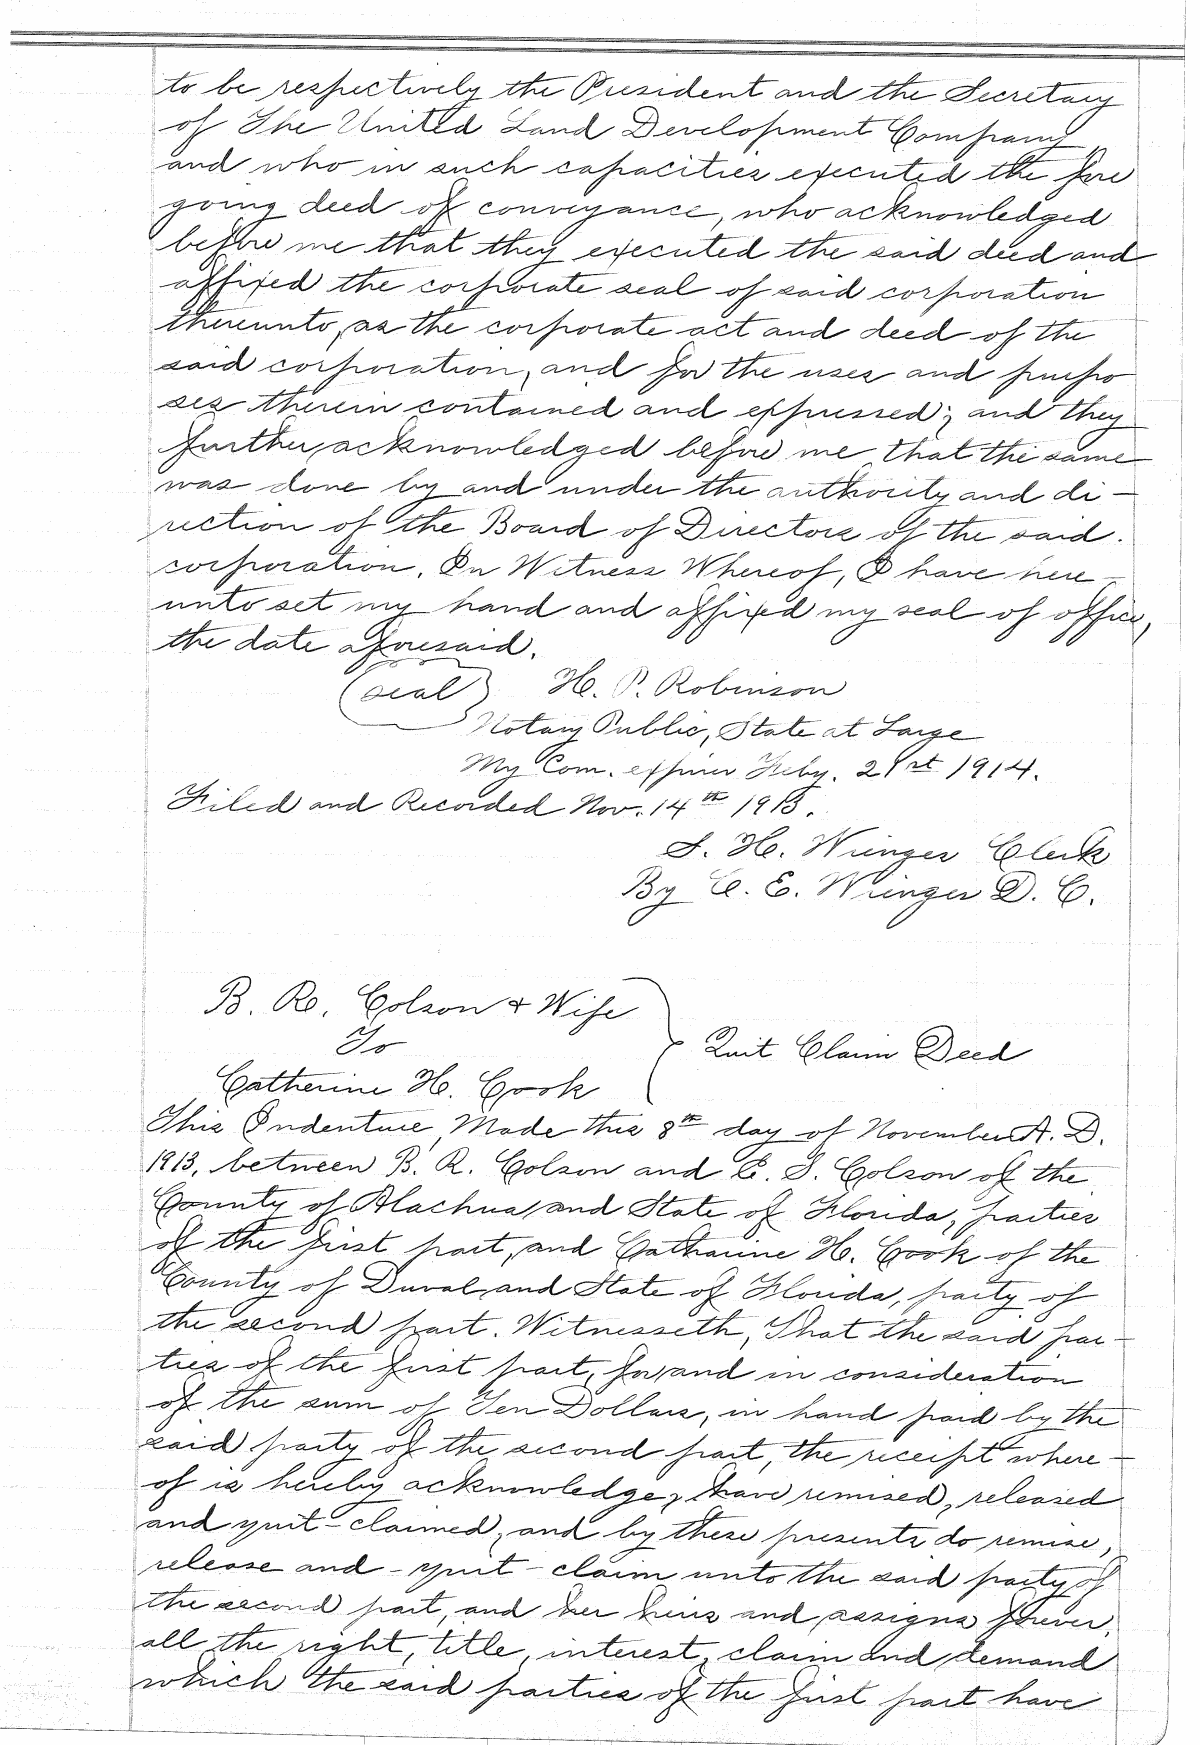 to be respectively the President and the Secretary
of The United Land Development Company
and who in such capacities executed the fore
going deed of conveyance, who acknowledged
before me that they executed the said deed and
affixed the corporate seal of said corporation
thereunto, as the corporate act and deed of the
said corporation, and for the uses and purpo
ses therein contained and expressed; and they
further, acknowledged before me that the same
was done by and under the authority and di-
rection of the Board of Directors of the said.
corporation. In Witness Whereof, I have here-
unto set my hand and affixed my seal of office,
the date aforesaid.
(seal) H. P. Robinson
Notary Public, State at Large
My Com. expires Feby. 21st 1914.
Filed and Recorded Nov. 14th 1913.
S. H. Wienges Clerk
By C. E. Wienges D. C.
B. R. Colson & Wife
To
Quit Claim Deed
Catherine H. Cook
This Indenture, Made this 8th day of November A. D.
1913, between B. R. Colson and E. S. Colson of the
County of Alachua, and State of Florida, parties
of the first part, and Catharine H. Cook of the
County of Duval, and State of Florida, party of
the second part. Witnesseth, That the said par-
ties of the first part, for, and in consideration
of the sum of Ten Dollars, in hand paid by the
said party of the second part, the receipt where-
of is hereby acknowledge, have remised, released
and quit-claimed, and by these presents do remise,
release and - quit - claim unto the said party of
the second part, and her heirs and assigns forever,
all the right, title, interest, claim and demand
which the said parties of the first part have